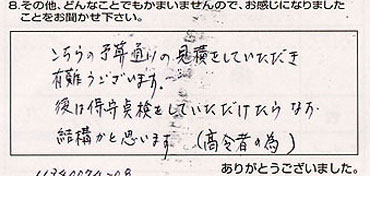 8.その他、どんなことでもかまいませんので、お感じになりました
ことをお聞かせ下さい。
こちらの予算通りの見積をしていただき
有難うございます。
後は保守点検をしていただけたらなお
結構かと思います (高令者の為)
ありがとうございました。